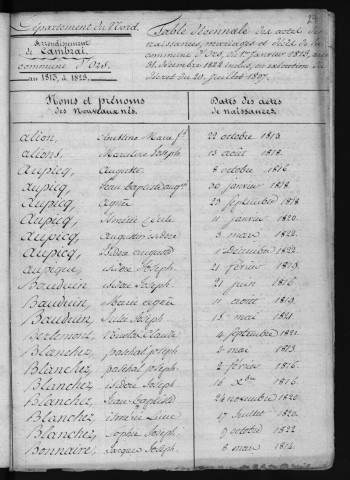 Département du Nord.
Arrondissement
de
Cambrai
commune d'Ors.
an 1813, à 1823.
Table décennale des actes de
naissances, mariages et décès de la
commune d'Ors, du 1er janvier 1813, au
31 décembre 1822 inclus, en exécution du
Décret du 20 juillet 1807.
Noms et prénoms
des Nouveaux nés.
Dates des actes
de naissances.
alion, Marie 22 octobre 1813.
alions, Joseph 13 août 1818.
Aupicq, auguste 8 octobre 1816.
aupicq, Jean Baptiste 30 janvier 1818.
aupicq, 29 Septembre 1818.
aupicq, 11 janvier 1820.
aupicq, augustin isidore 3 mars 1822.
aupicq, Isidore 1 Décembre 1822.
aupique, isidore Joseph 21 février 1819.
Bauduin, isidore Joseph. 21 juin 1816.
Bauduin, Marie 11 août 1819.
Bauduin, Jules Joseph. 13 mai 1821.
Berlemont, Nicolas Claude 4 Septembre 1821.
Blanchez, paschal joseph 2 mai 1813.
Blanchez, paschal joseph. 2 février 1816.
Blanchez, isidore Joseph. 16 Xbre 1816.
Blanchez, Jean Baptiste 24 novembre 1820.
Blanchez, 17 Juillet 1820.
Blanchez, Sophie Joseph. 9 octobre 1822
Bonnaire, Jacques Joseph. 8 mai 1814.